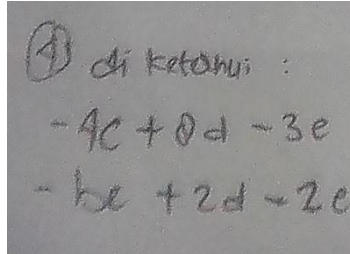 ④ diketahui :
-4c + 8d - 3e
- be + 2d - 2e